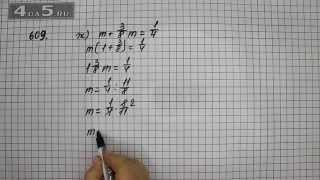 4a5.RU
609. ж) m + 3/8 m = 1/4
m(1 + 3/8) = 1/4
1 3/8 m = 1/4
m = 1/4 : 11/8
m = 1/4 · 8/11 2
m